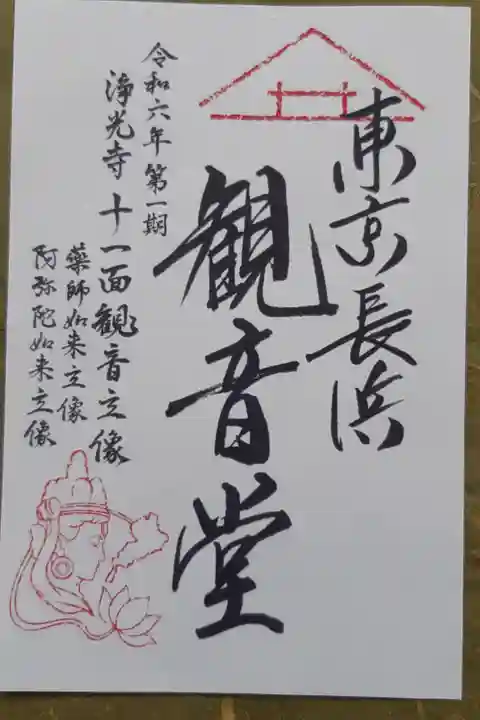 東京長浜
観音堂
令和六年第一期
浄光寺 十一面観音立像
薬師如来立像
阿弥陀如来立像